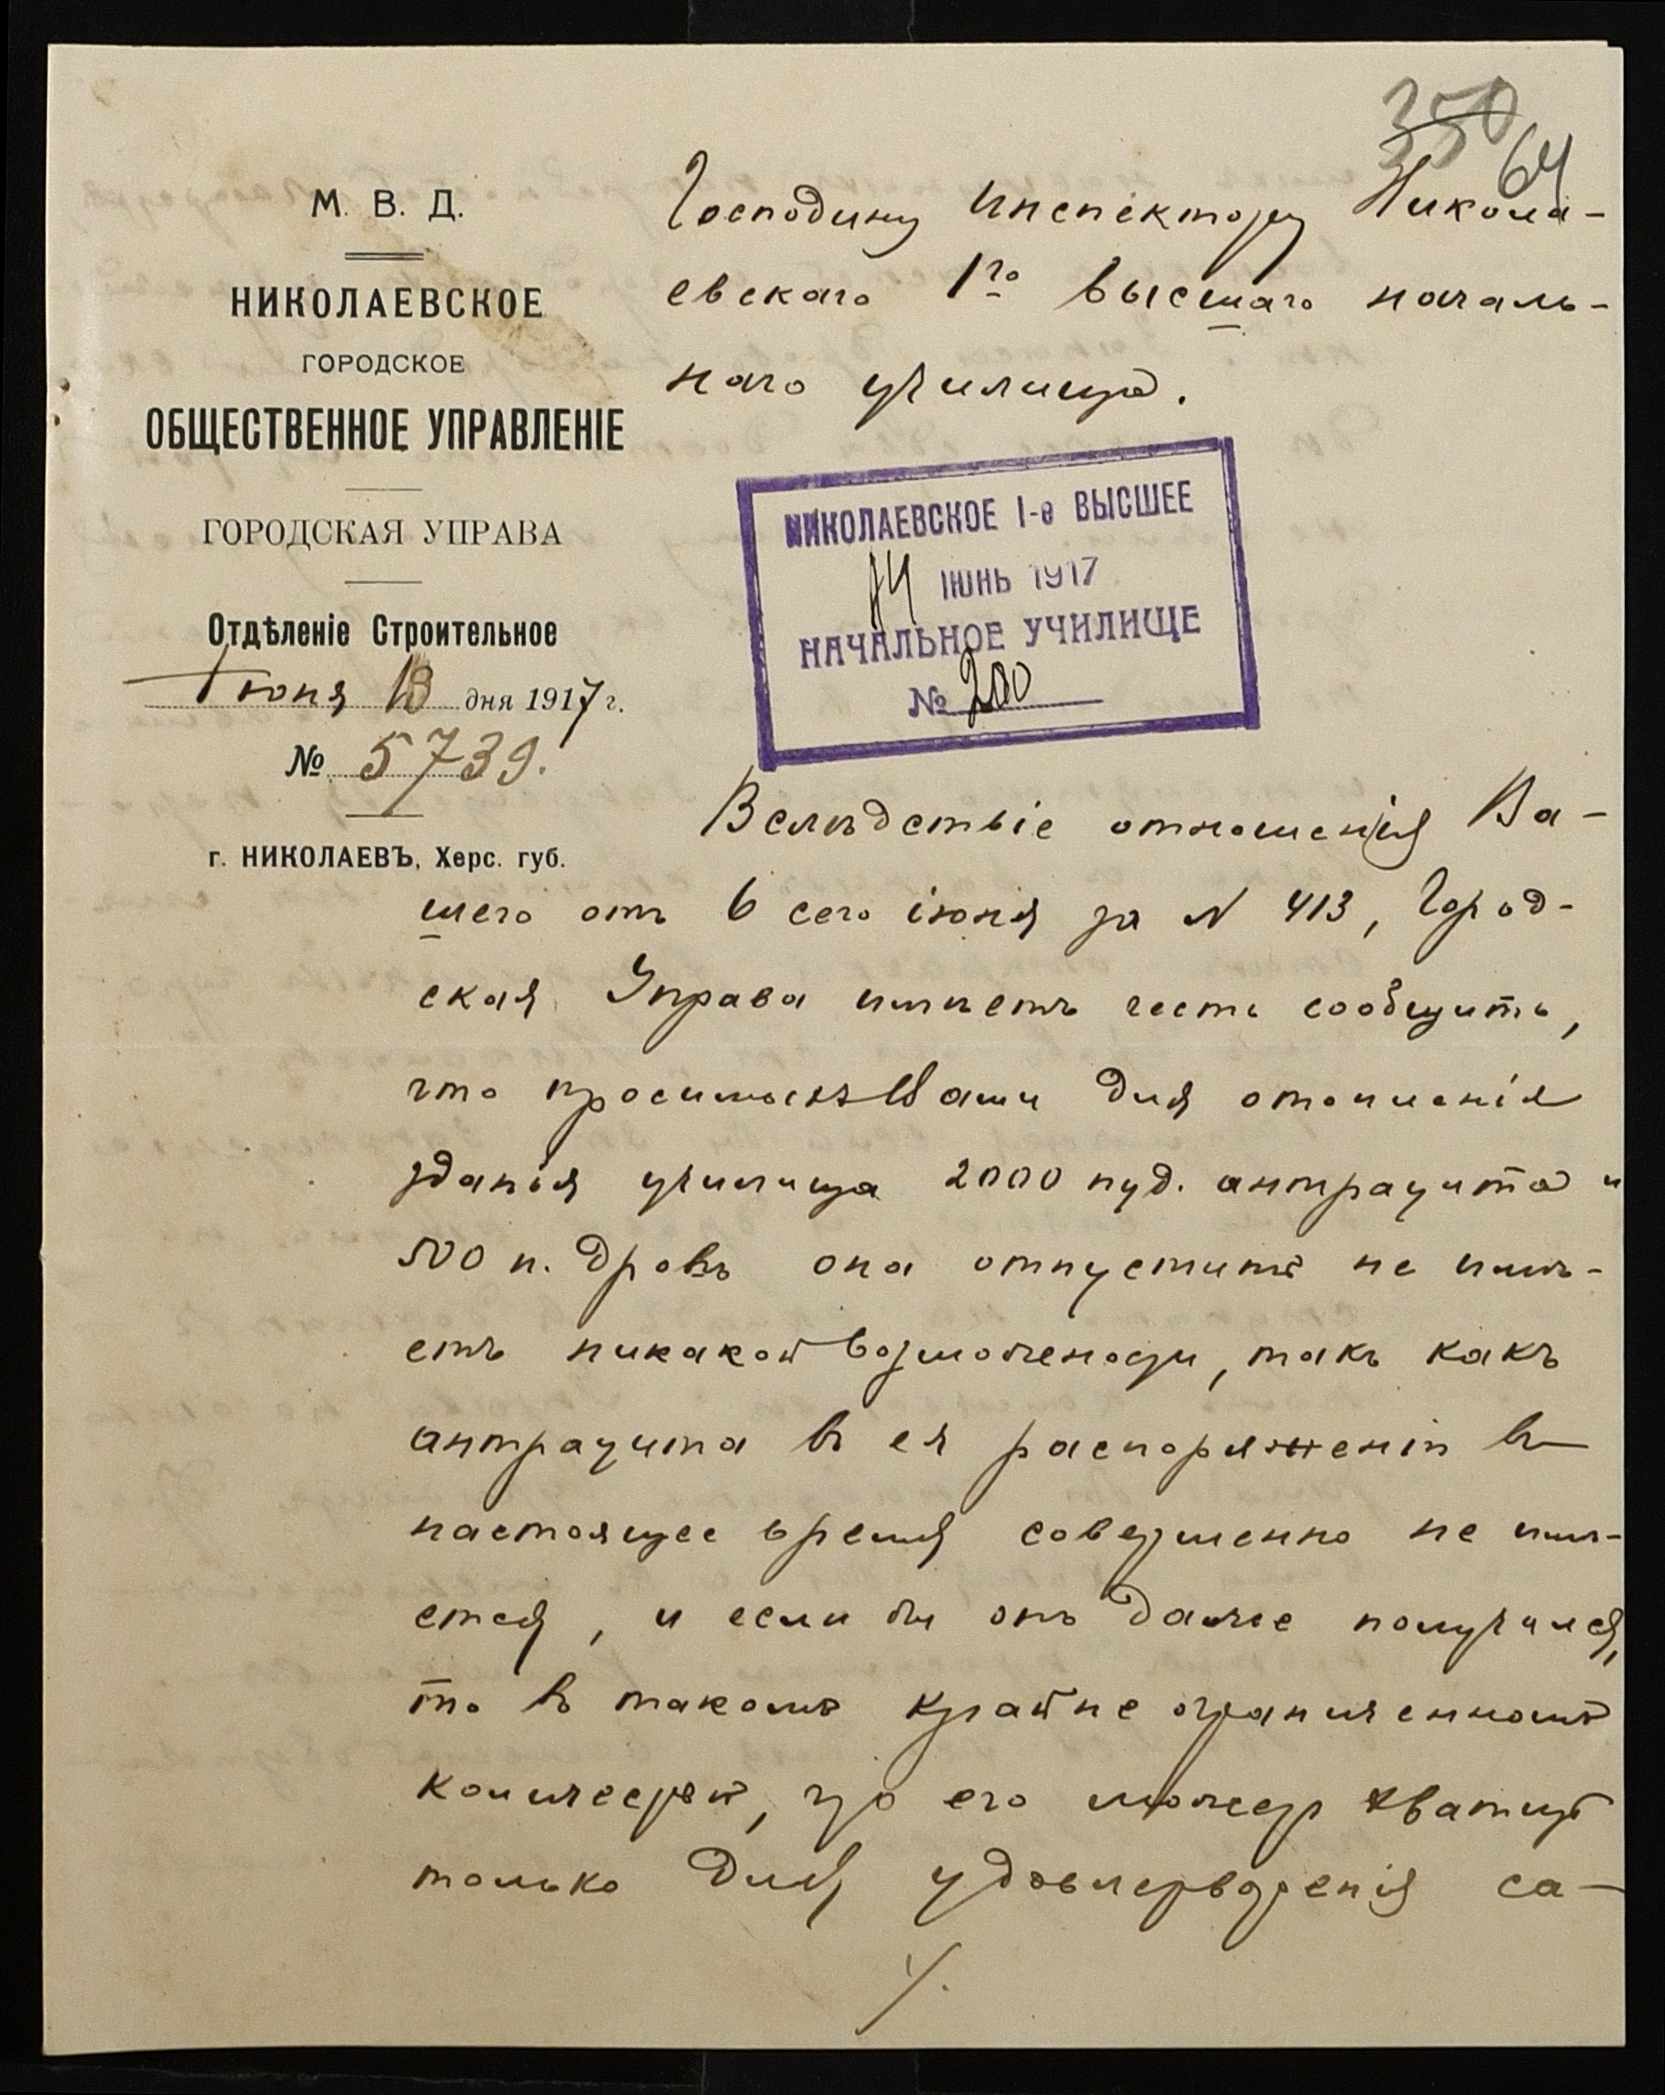 350
64
М. В. Д.
НИКОЛАЕВСКОЕ
ГОРОДСКОЕ
ОБЩЕСТВЕННОЕ УПРАВЛЕНІЕ
ГОРОДСКАЯ УПРАВА
Отдѣленіе Строительное
Іюня 13 дня 1917 г.
№ 5739.
г. НИКОЛАЕВЪ, Херс. губ.
Господину Инспектору Никола-
евскаго 1го высшаго началь-
наго училища.
НИКОЛАЕВСКОЕ І-е ВЫСШЕЕ
14 ІЮНЬ 1917
НАЧАЛЬНОЕ УЧИЛИЩЕ
№ 200
Вслѣдствіе отношенія Ва-
шего отъ 6 сего іюня за N 413, Город-
ская Управа имѣетъ честь сообщить,
что просимыхъ Вами для отопленія
зданія училища 2000 пуд. антрацита и
500 п. дровъ она отпустить не имѣ-
етъ никакой возможности, такъ какъ
антрацита въ ея распоряженіи въ
настоящее время совершенно не имѣ-
ется, и если бы онъ даже получился,
то въ такомъ крайне ограниченномъ
количествѣ, что его можетъ хватить
только для удовлетворенія са-
./.